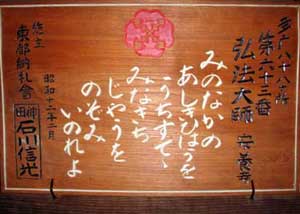 多摩八十八ヶ所
第六十三番
弘法大師 安養寺
みのなかの
あしきひほうを
うちすてゝ
みなきち
じやうを
のぞみ
いのれよ
昭和十二年二月
施主 東都納札會
田端 石川信光